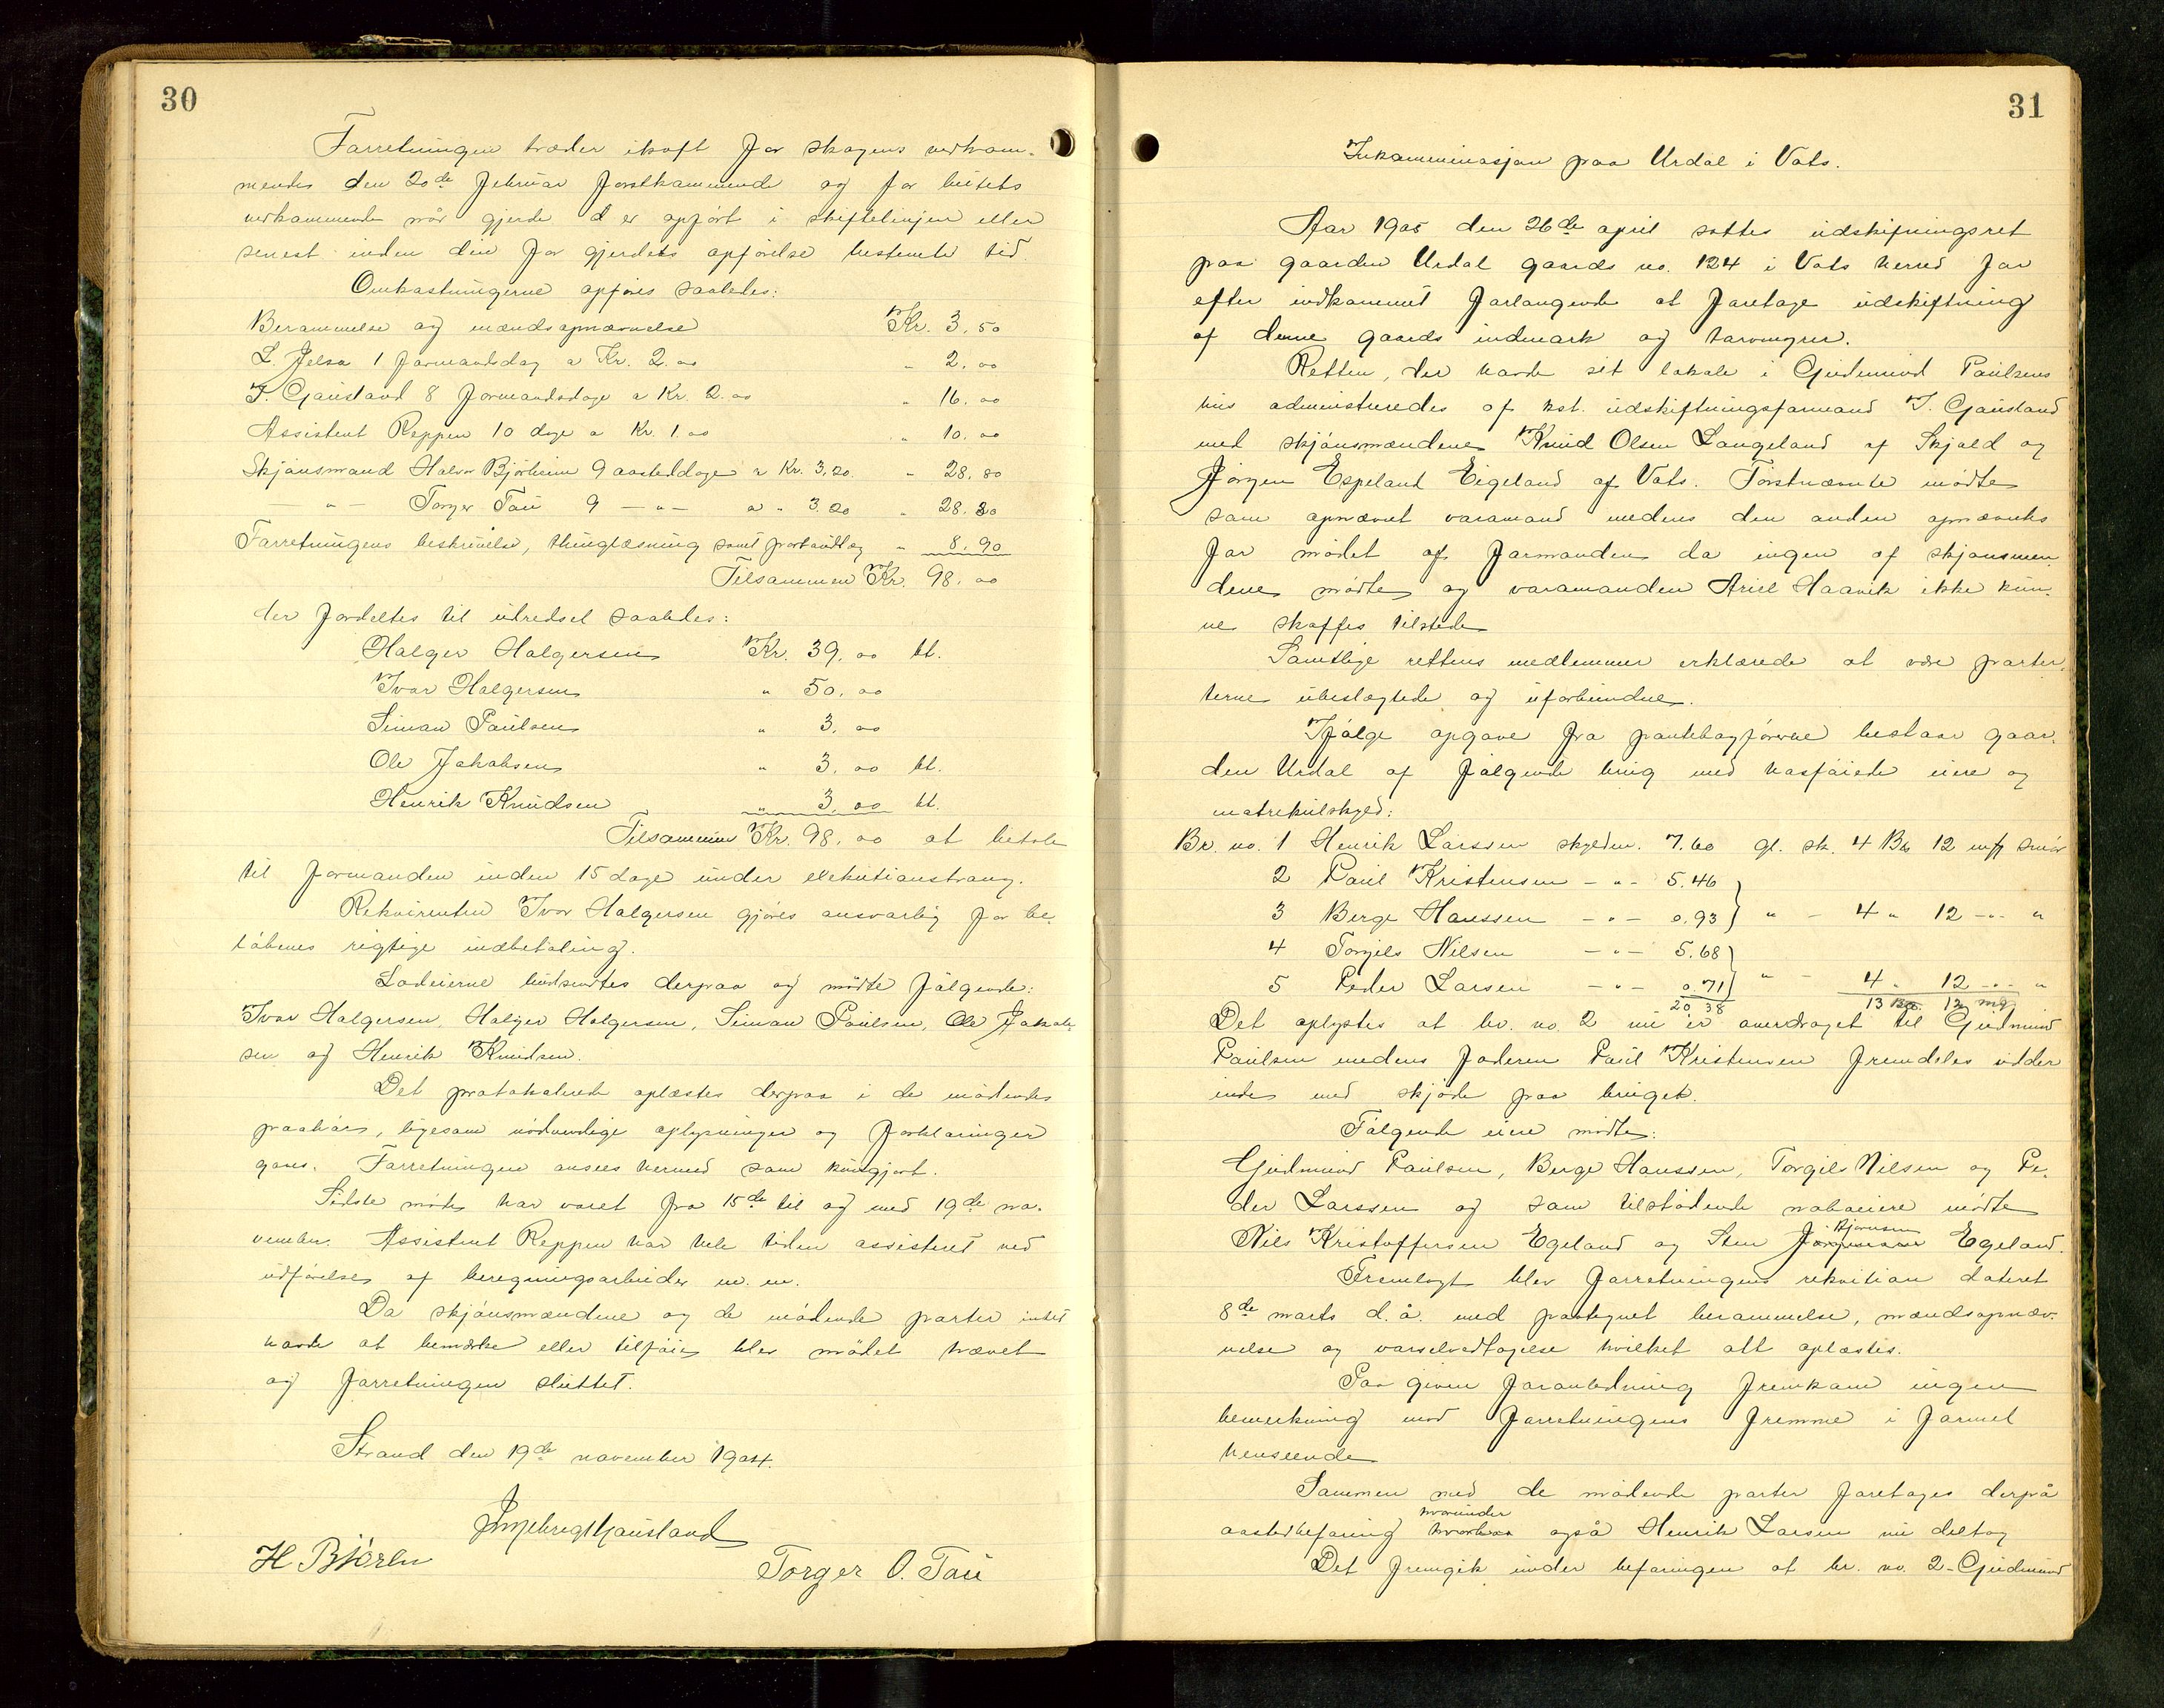 30
Forretningen træder ikraft for skogens vedkom-
mende den 20de februar førstkommende og for beitets
vedkommende når gjerde d er opført i skiftelinjen eller
senest inden den for gjerdets opførelse bestemte tid.
Omkostningerne opføres saaledes:
Berammelse og mændsopnævnelse Kr. 3,50
L. Jelsa 1 formandsdag a Kr. 2.00 " 2,00
I. Gausland 8 formandsdage a Kr. 2.00 " 16,00
Assistent Reppen 10 dage a Kr. 1.00 " 10,00
Skjønsmand Halvor Bjørheim 9 aastedsdage a Kr. 3,20. " 28,80
—"— Torger Tau 9 —"— a " 3.20 " 28,80
Forretningens beskrivelse, thinglæsning samt portoutlæg " 8,90
Tilsammen Kr. 98.00
der fordeltes til utredsel saaledes:
Holger Holgersen Kr. 39,00 bt.
Ivar Holgersen " 50,00
Simon Paulsen " 3,00
Ole Jakobsen " 3,00 bt.
Henrik Knudsen " 3,00 bt.
Tilsammen Kr. 98,00 at betale
til formanden inden 15 dage under eksekutionstvang.
Rekvirenten Ivar Holgersen gjøres ansvarlig for be-
løbenes rigtige indbetaling.
Lodeierne indkaldtes derpaa og mødte følgende:
Ivar Holgersen, Holger Holgersen, Simon Paulsen, Ole Jakob-
sen og Henrik Knudsen.
Det protokolerede oplæstes derpaa i de mødendes
paahør, ligesom nødvendige oplysninger og forklaringer
gaves. Forretningen ansees hermed som kundgjort.
Sidste møde har varet fra 15de til og med 19de no-
vember. Assistent Reppen har hele tiden assisteret ved
udførelse af beregningsarbeider m. m.
Da skjønsmændene og de mødende parter intet
havde at bemærke eller tilføie blev mødet hævet
og forretningen sluttet.
Strand den 19de november 1904.
Ingebregt Gausland
H Bjørhn
Torger O. Tau
31
Inkaminasjon paa Urdal i Vats.
Aar 1905 den 26de april sattes udskifningsret
paa gaarden Urdal gaards no. 124 i Vats herred for
efter indkommet forlangende at foretage udskiftning
af denne gaards indmark og havninger.
Retten, der havde sit lokale i Gudmund Paulsens
hus administreredes af kst. udskiftningsformand I. Gausland
med skjønsmændene Knud Olsen Langeland af Skjold og
Jørgen Espeland Eigeland af Vats. Førstnævnte mødte
som opnævnt varamand medens den anden opnævntes
for mødet af formanden da ingen af skjønsmæn-
dene mødte og varamanden Ariel Haavik ikke kun-
ne skaffes tilstede
Samtlige rettens medlemmer erklærede at være parter-
terne ubeslægtede og uforbundne.
Ifølge opgave fra pantebogføreren bestaar gaar-
den Urdal af følgende brug med hosføiede eiere og
matrekulskyld:
Br. no. 1 Henrik Larssen skyldm. 7.60 gl. sk. 4 Bb 12 mg smør
2 Paul Kristensen —"— 5.46
3 Berge Hanssen —"— 0,93 " — 4 " 12 —"— "
4 Torgils Nilsen —"— 5.68
5 Peder Larsen —"— 0.71 " — 4 " 12 —"— "
20 38 13 Bp. 12 mg
Det oplystes at br. no. 2 nu er overdraget til Gudmund
Paulsen medens faderen Paul Kristensen fremdeles sidder
inde med skjøde paa bruget.
Følgende eiere mødte:
Gudmund Paulsen, Berge Hanssen, Torgils Nilsen og Pe-
der Larssen og som tilstødende naboeiere mødte
Bjørnsen
Nils Kristoffersen Egeland og Sten Jørgensen Egeland.
Fremlagt blev forretningens rekvisition dateret
8de marts d. å. med paategnet berammelse, mændsopnæv-
nelse og varselvedtagelse hvilket alt oplæstes.
Paa given foranledning fremkom ingen
bemerkning mod forretningens fremme i formel
henseende
Sammen med de mødende parter foretoges derpå
hvorunder
aastedbefaring hvorhos også Henrik Larsen nu deltog
Det fremgik under befaringen at br. no. 2 - Gudmund